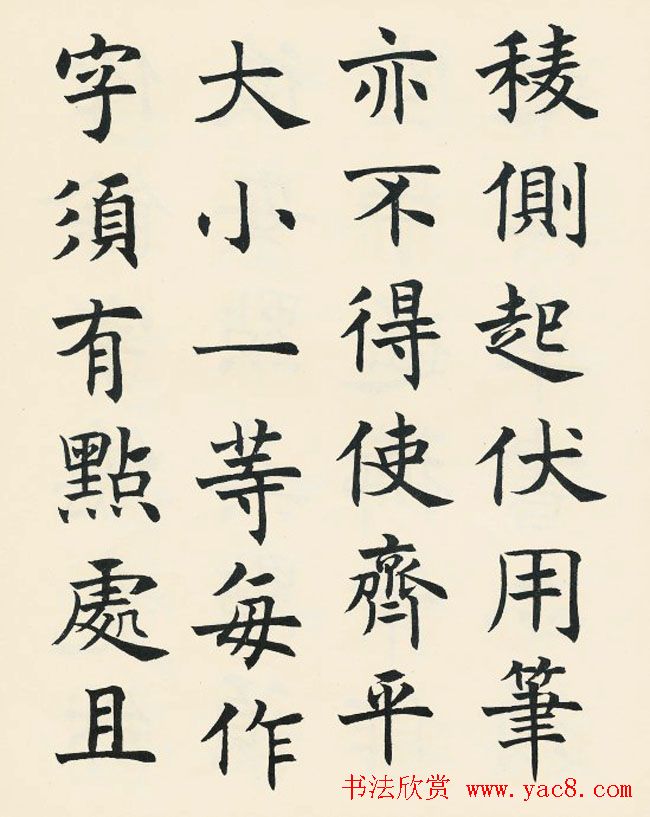 稜側起伏用筆
亦不得使齊平
大小一等每作
字須有點處且
书法欣赏 www.yac8.com